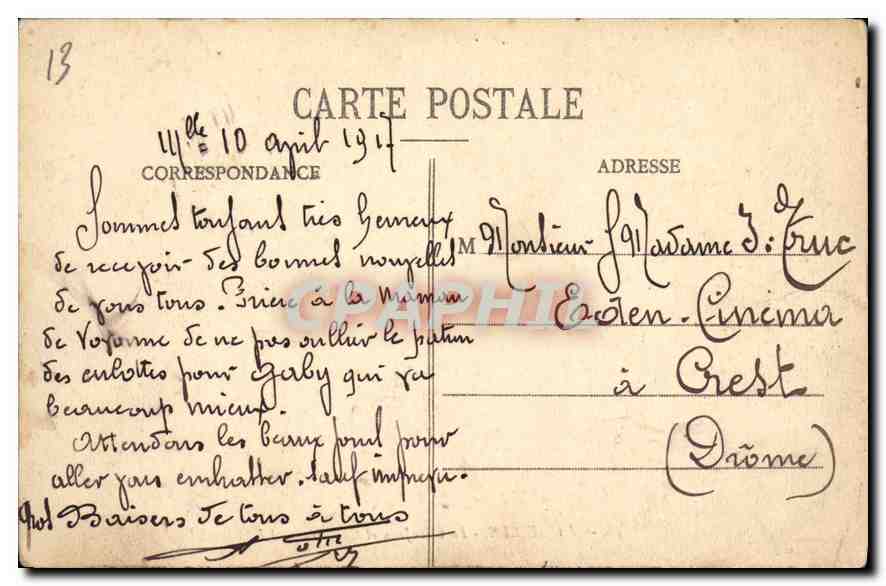 13
CARTE POSTALE
Mlle 10 April 1917
CORRESPONDANCE
Sommes toujours très heureux
de recevoir des bonnes nouvelles
de vous tous. Prière à la maman
de Yoyonne de ne pas oublier le patron
des culottes pour Gaby qui va
beaucoup mieux.
Attendons les beaux jours pour
aller vous embrasser. Sauf imprévu.
Gros Baisers de tous à tous
ADRESSE
M Monsieur & Madame Truc
Eden-Cinéma
à Crest
(Drôme)
CPAPHIL